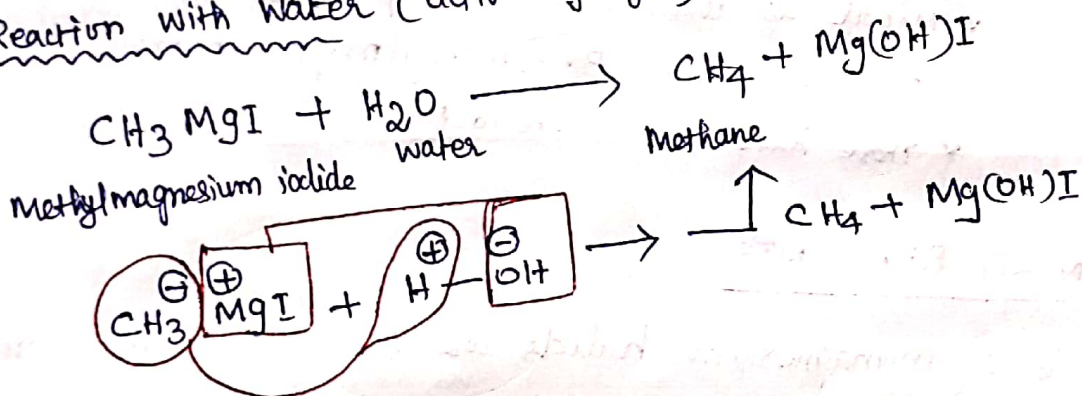 Reaction with Water (
CH3 MgI + H2O ⟶ CH4 + Mg(OH)I
Methylmagnesium iodide water Methane
⊖ ⊕ ⊕ ⊖
CH3 MgI + H — OH → CH4 + Mg(OH)I